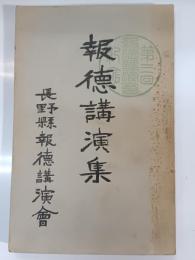 報德講演集
長野縣報德講演會
第二回